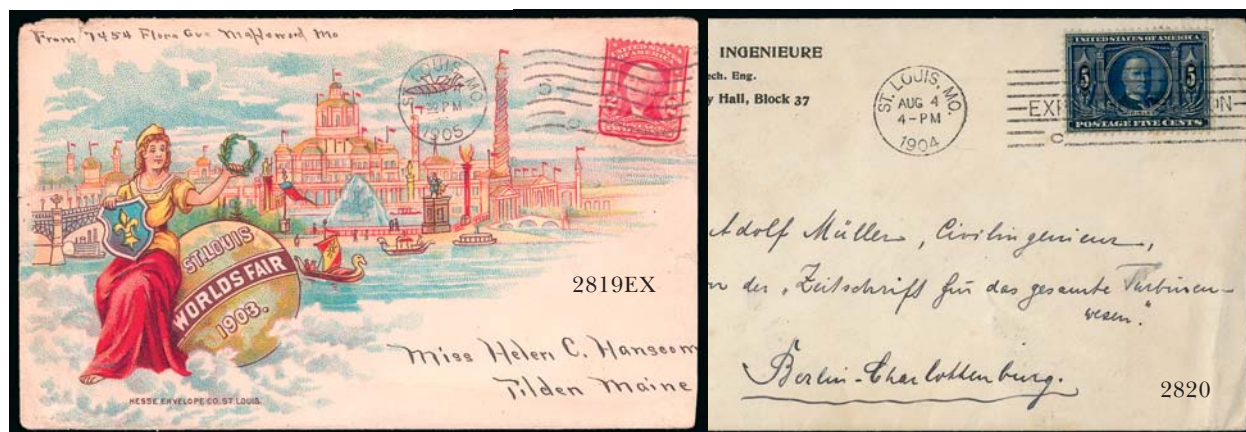 From 7454 Flora Ave Maplewood, Mo
ST. LOUIS, MO.
PM
1905
UNITED STATES
OF AMERICA
ST. LOUIS
WORLDS FAIR
1903.
2819EX
Miss Helen C. Hanscom
Tilden Maine
HESSE ENVELOPE CO. ST. LOUIS.
INGENIEURE
ech. Eng.
y Hall, Block 37
ST. LOUIS, MO.
AUG 4
4-PM
1904
UNITED STATES OF AMERICA
5 5
POSTAGE FIVE CENTS
Adolf Müller, Civilingenieur,
n der „Zeitschrift für das gesamte Turbinen-
wesen."
Berlin-Charlottenburg.
2820